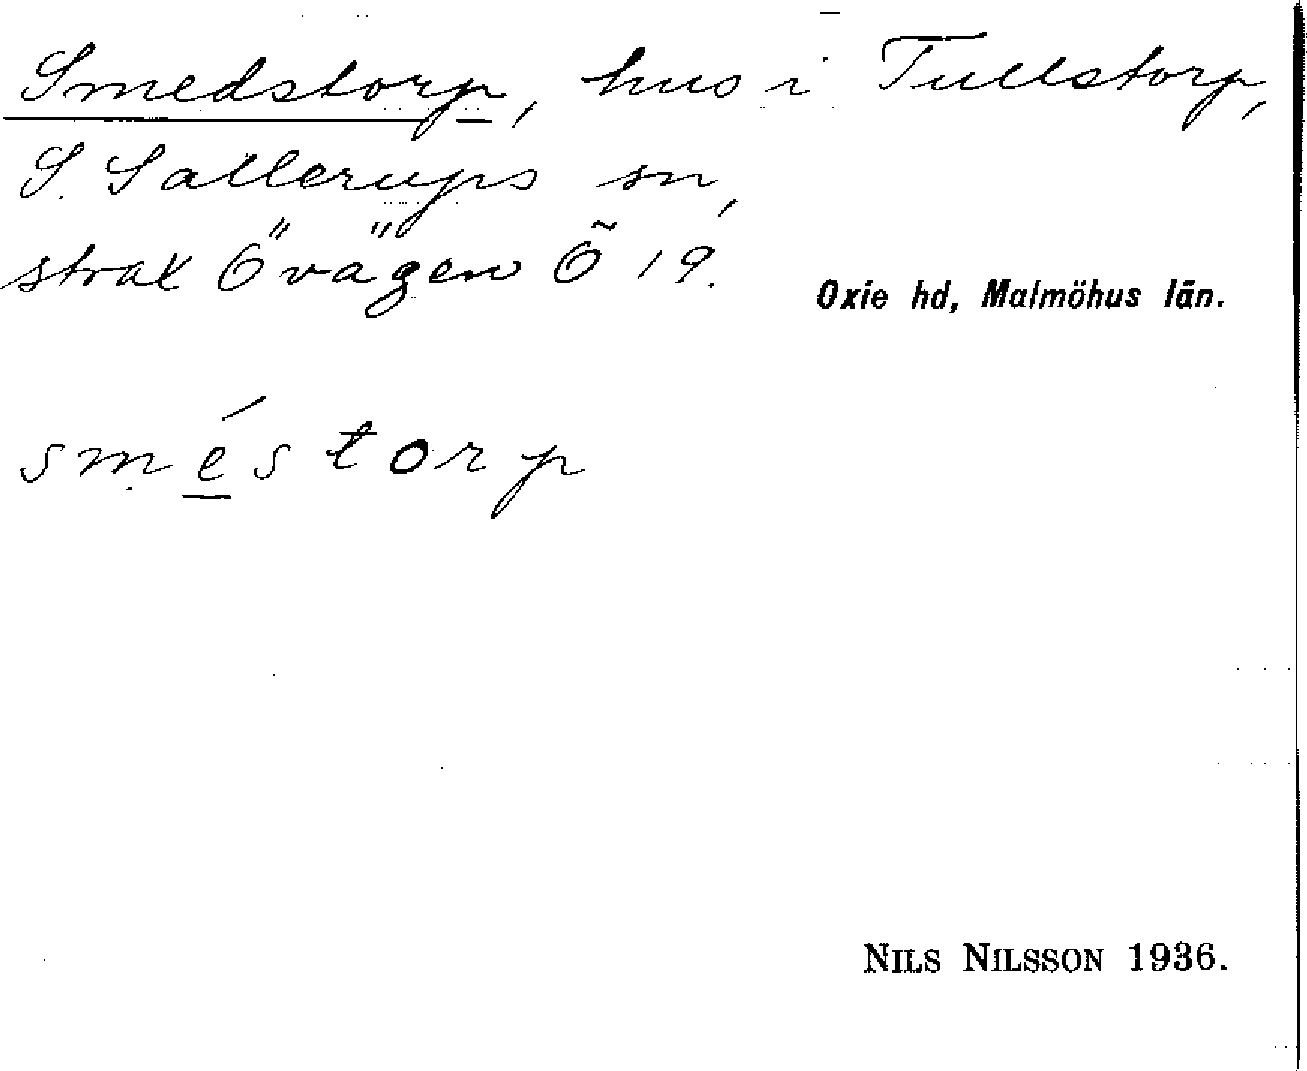 Smedstorp, hus i Tullstorp,
S. Sallerups sn,
strax Ö vägen Ö 19.
Oxie hd, Malmöhus län.
sméstorp
NILS NILSSON 1936.